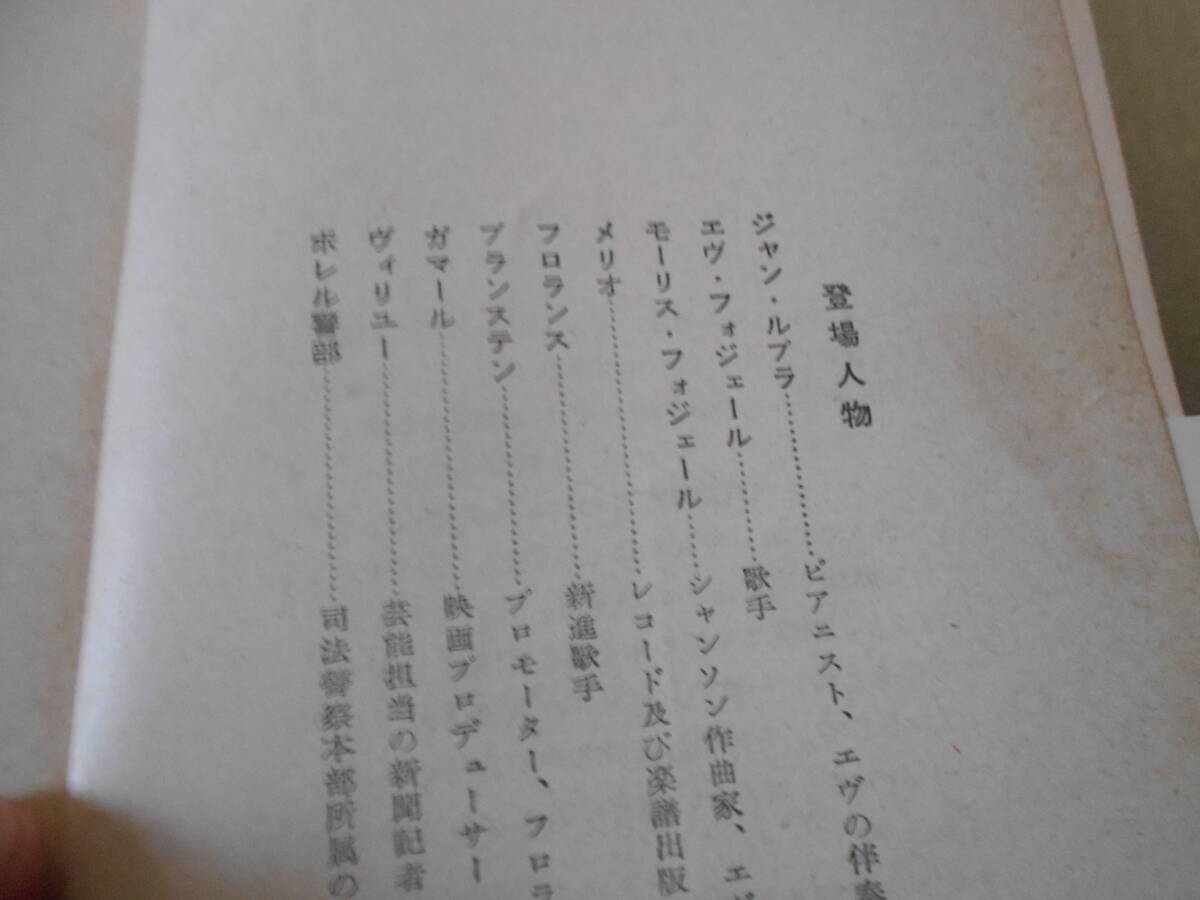 登場人物
ジャン・ルプラ………………ピアニスト、エヴの伴奏
エヴ・フォジェール…………歌手
モーリス・フォジェール……シャンソン作曲家、エ
メリオ…………………………レコード及び楽譜出版
フロランス……………………新進歌手
ブランステン…………………プロモーター、フロラ
ガマール………………………映画プロデューサー
ヴィリユー……………………芸能担当の新聞記者
ボレル警部……………………司法警察本部所属の